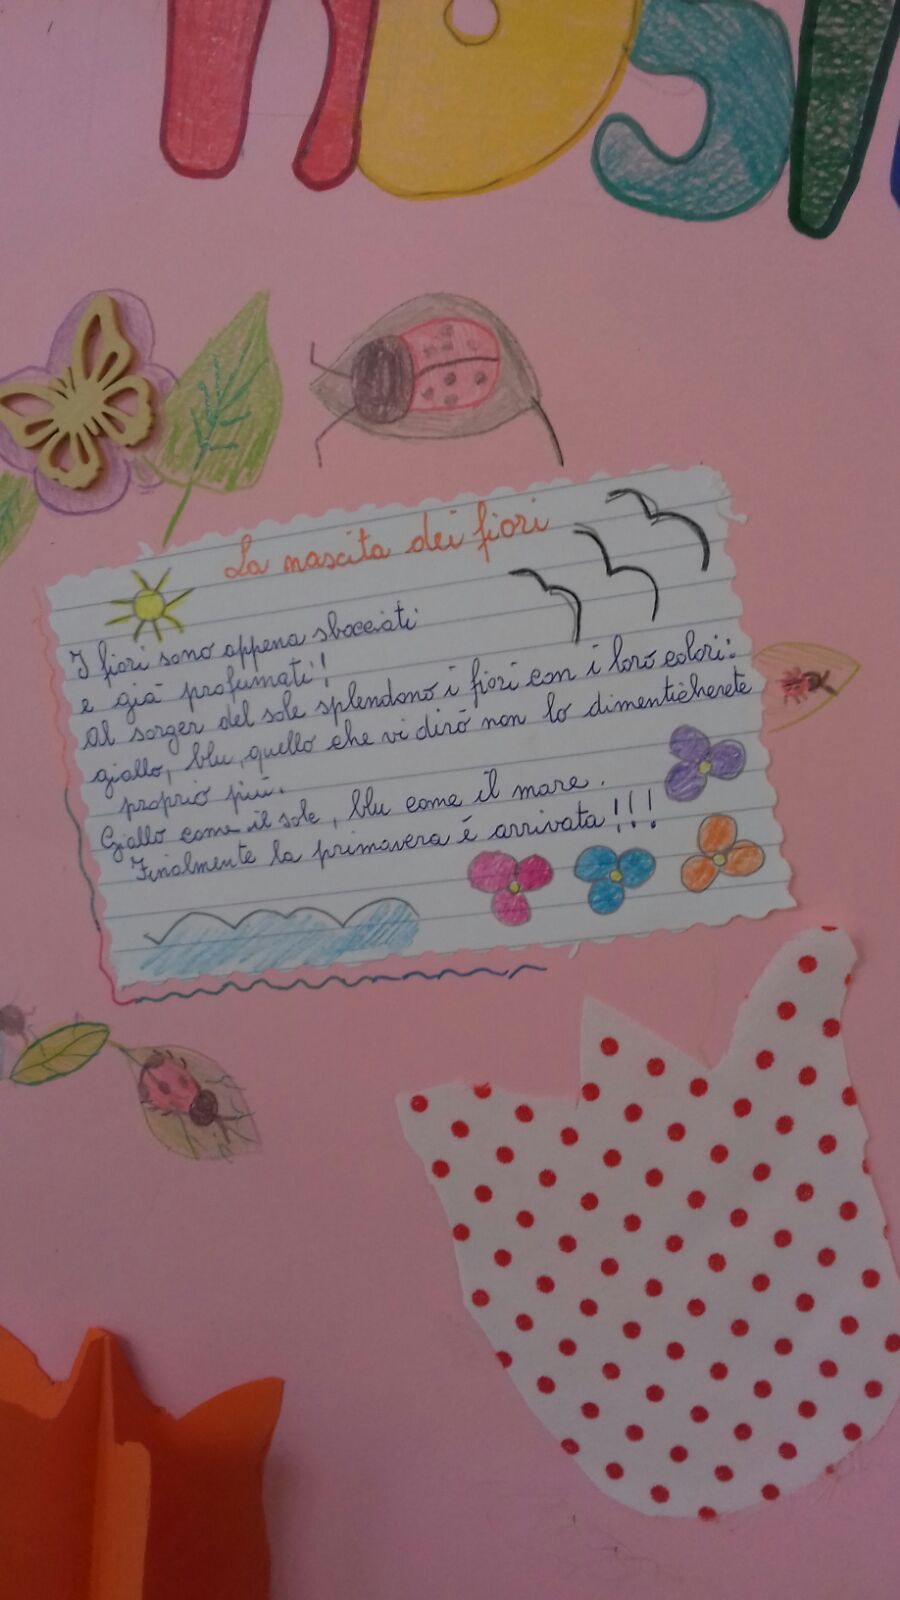 La nascita dei fiori
I fiori sono appena sbocciati
e già profumati!
Al sorger del sole splendono i fiori con i loro colori:
giallo, blu, quello che vi dirò non lo dimenticherete
proprio più.
Giallo come il sole, blu come il mare.
Finalmente la primavera è arrivata!!!